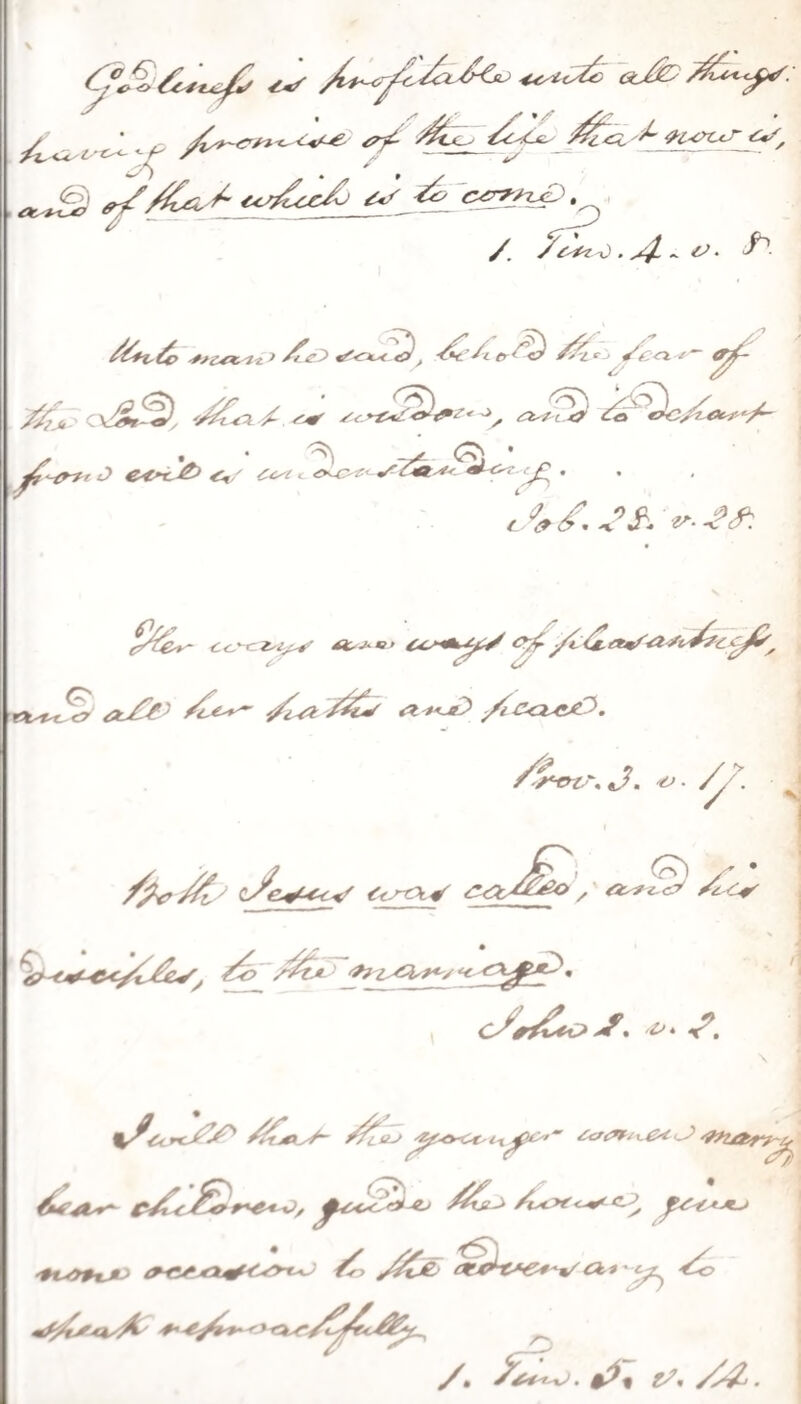 Godliness is profitable unto all things:
having promise of the life that now is,
and of that which is to come.
1. Tim. 4. v. 8.
Unto man he said, behold the fear of
the Lord, that is wisdom, and to depart
from evil is understanding.
Job. 28. v. 28.
Her ways are ways of pleasantness,
and all her paths are peace.
Prov. 3. v. 17.
Both Jesus was called, and his
disciples, to the marriage.
John 2. v. 2.
I will that the younger women marry,
bear children, guide the house, give
none occasion to the adversary to
speak reproachfully
1. Tim. 5. v. 14.